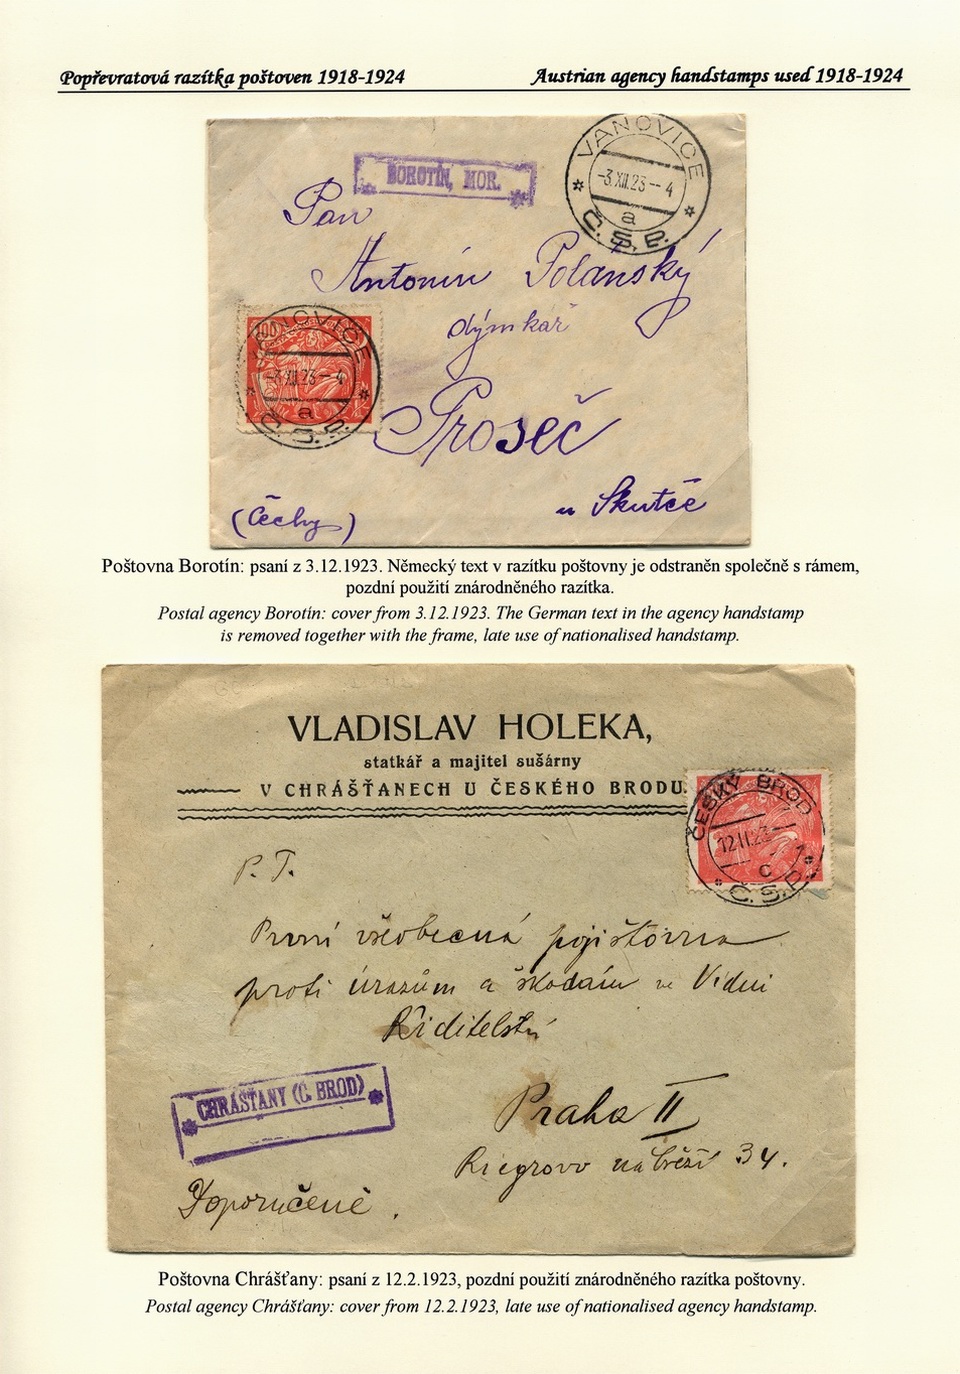 Popřevratová razítka poštoven 1918-1924
Austrian agency handstamps used 1918-1924
VANOVICE
-3.XII.23--4
a
Č.S.P.
BOROTÍN, MOR.
Pan
Antonín Polanský
dýmkař
100
VANOVICE
-3.XII.23--4
a
Č.S.P.
Proseč
u Skutče
(Čechy)
Poštovna Borotín: psaní z 3.12.1923. Německý text v razítku poštovny je odstraněn společně s rámem,
pozdní použití znárodněného razítka.
Postal agency Borotín: cover from 3.12.1923. The German text in the agency handstamp
is removed together with the frame, late use of nationalised handstamp.
VLADISLAV HOLEKA,
statkář a majitel sušárny
V CHRÁŠŤANECH U ČESKÉHO BRODU.
ČESKÝ BROD
12.II.23
c
Č.S.P.
P. T.
První všeobecná pojišťovna
proti úrazům a škodám ve Vídni
Řiditelství
CHRÁŠŤANY (Č. BROD)
Praha II
Riegrovo nábřeží 34.
Doporučeně.
Poštovna Chrášťany: psaní z 12.2.1923, pozdní použití znárodněného razítka poštovny.
Postal agency Chrášťany: cover from 12.2.1923, late use of nationalised agency handstamp.